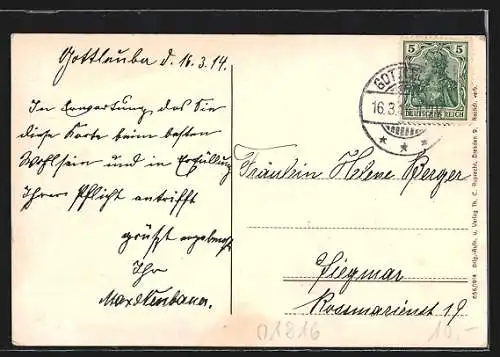 Gottleuba d. 16.3.14.
In Erwartung das Sie
diese Karte beim besten
Wohlsein und in Erfüllung
Ihrer Pflicht antrifft
grüßt ergebenst
Ihr
5 5
DEUTSCHES REICH
16.3.1
Fräulein Helene Berger
Siegmar
Rosmarienst 19
Orig.-Aufn. u. Verlag Th. C. Ruprecht, Dresden 9. Nachdr. verb.
01816
10,-